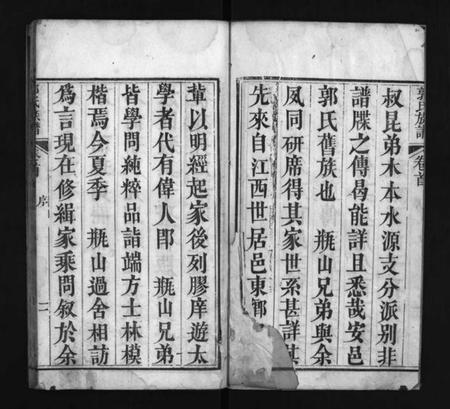 叔昆弟木本水源支分派別非
譜牒之傳曷能詳且悉哉安邑
郭氏舊族也　瓶山兄弟與余
夙同研席得其家世系甚詳其
先來自江西世居邑東鄉
卷首
輩以明經起家後列膠庠遊太
學者代有偉人即　瓶山兄弟
皆學問純粹品詣端方士林模
楷焉今夏季　瓶山過舍相訪
為言現在修緝家乘問叙於余
序
二